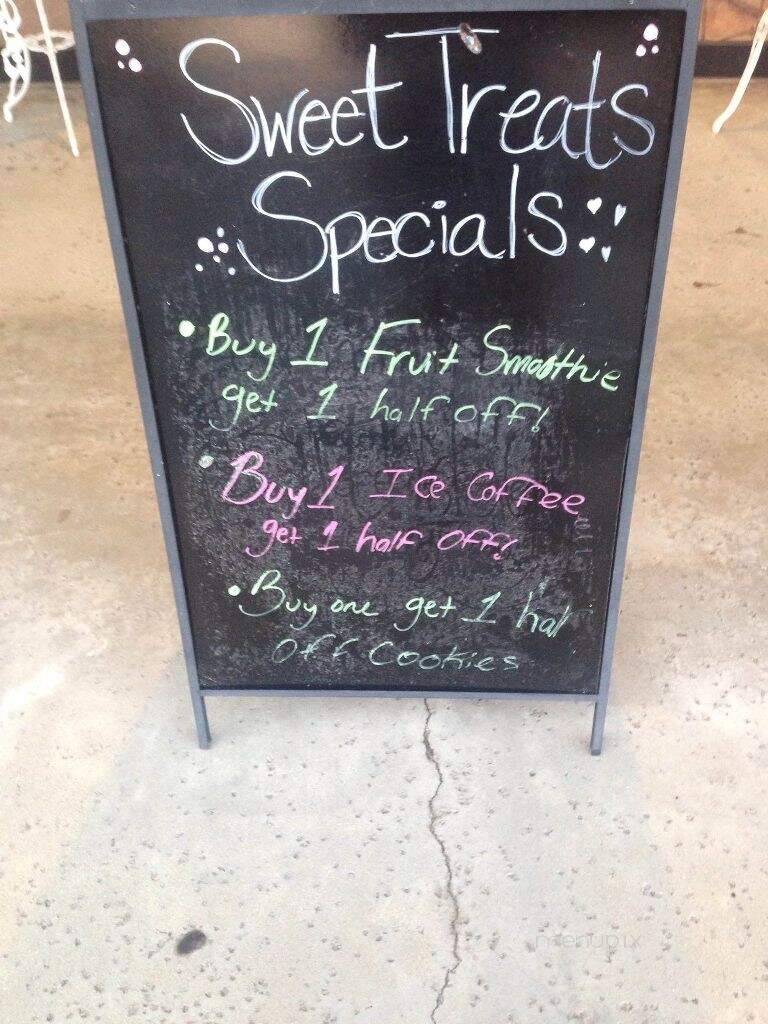 Sweet Treats
Specials
• Buy 1 Fruit Smoothie
get 1 half off!
• Buy 1 Ice Coffee
get 1 half off!
• Buy one get 1 half
off cookies
menupix